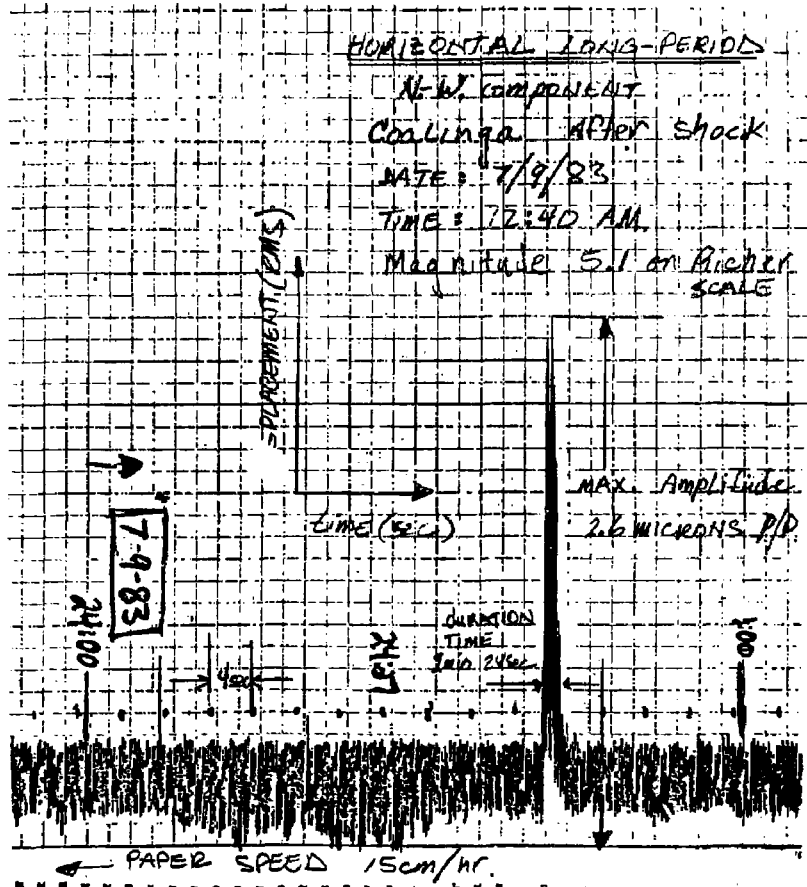 HORIZONTAL LONG-PERIOD
N-W. COMPONENT
Coalinga After Shock
DATE: 7/9/83
TIME: 12:40 AM.
Magnitude 5.1 on Richer
SCALE
=PLACEMENT (RMS)
time (sec)
MAX. Amplitude
2.6 MICRONS P/P
7-9-83
24:00
4sec
LP.H
DURATION
TIME
1min 24sec
1:00
PAPER SPEED 15cm/hr.